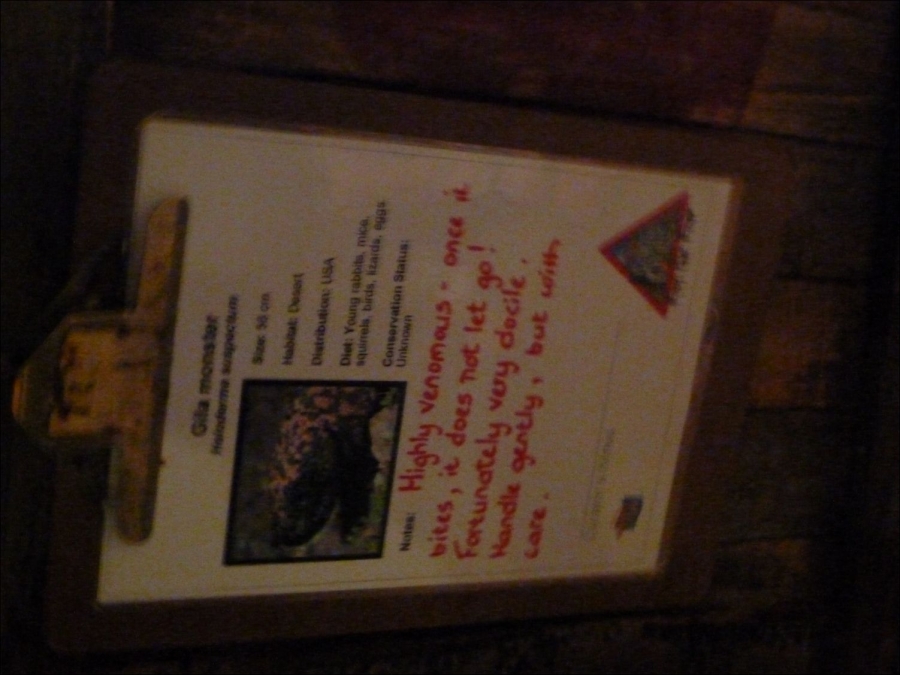 Gila monster
Heloderma suspectum
Size: 56 cm
Habitat: Desert
Distribution: USA
Diet: Young rabbits, mice,
squirrels, birds, lizards, eggs
Conservation Status:
Unknown
Notes: Highly venomous - once it
bites, it does not let go!
Fortunately very docile.
Handle gently, but with
care.